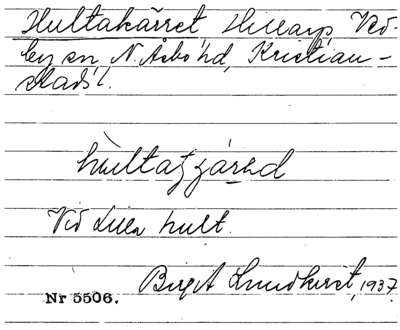 Hultakärret, Hillarp, Ved-
by sn, N. Åsbo hd, Kristian-
stads l.
Vid Lilla Hult.
Birgit Lundkvist, 1937
Nr 5506.